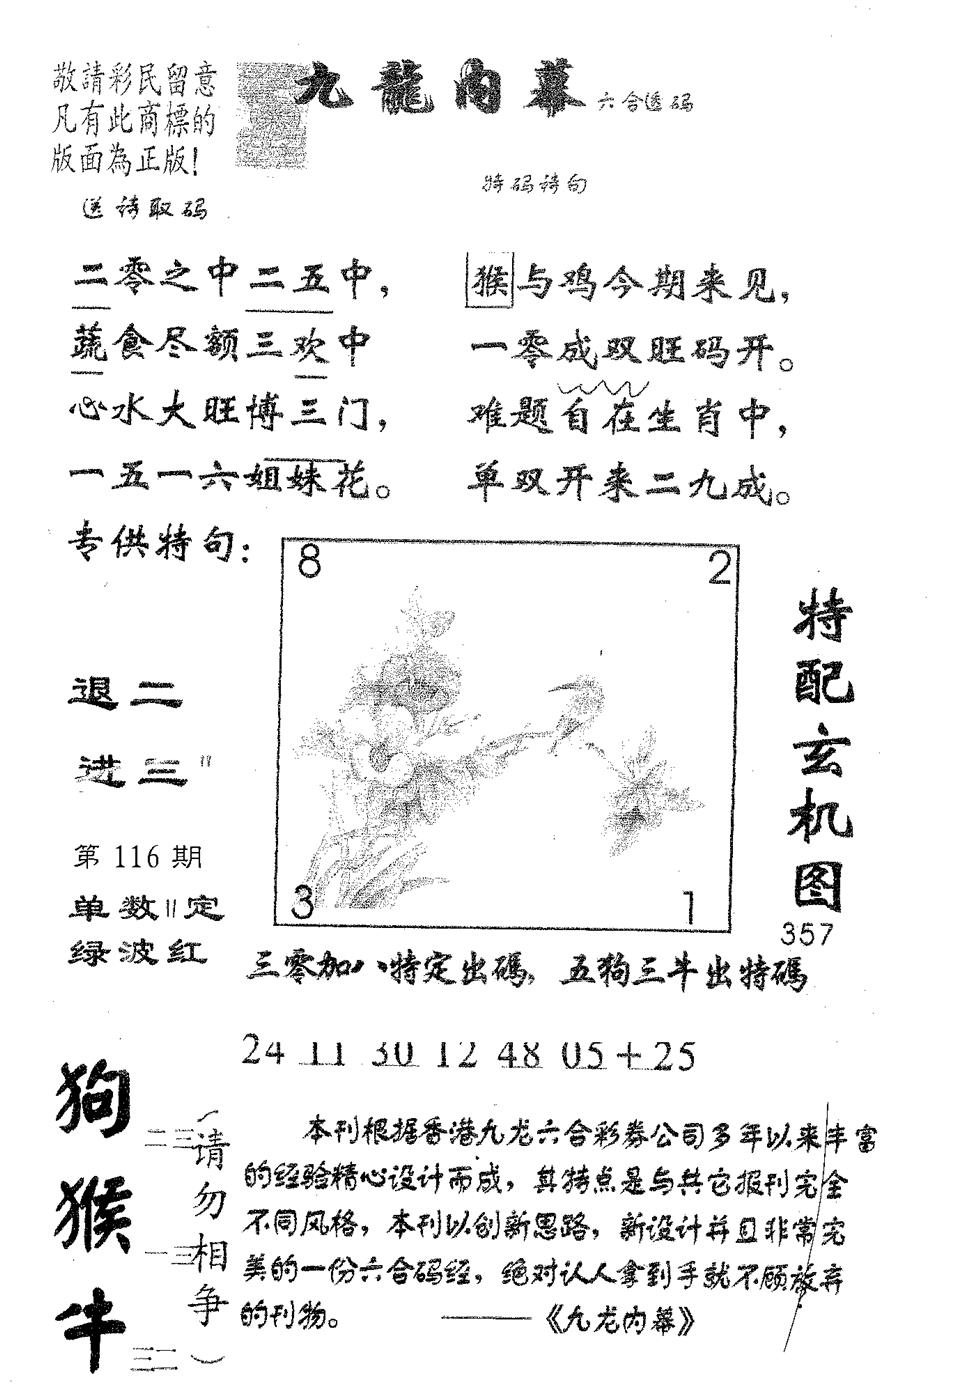 敬請彩民留意
凡有此商標的
版面為正版!
九龍内幕
六合透码
特码诗句
送诗取码
二零之中二五中，
蔬食尽额三欢中
心水大旺博三门，
一五一六姐妹花。
猴与鸡今期来见，
一零成双旺码开。
难题自在生肖中，
单双开来二九成。
专供特句：
8
2
3
1
特配玄机图
357
退二
进三"
第116期
单数"定
绿波红
三零加八特定出碼，五狗三牛出特碼
24 11 30 12 48 05+25
狗 二三
猴 一三
牛 三二
（请勿相争）
本刊根据香港九龙六合彩券公司多年以来丰富
的经验精心设计而成，其特点是与其它报刊完全
不同风格，本刊以创新思路，新设计并且非常完
美的一份六合码经，绝对认人拿到手就不顾放弃
的刊物。 ——《九龙内幕》